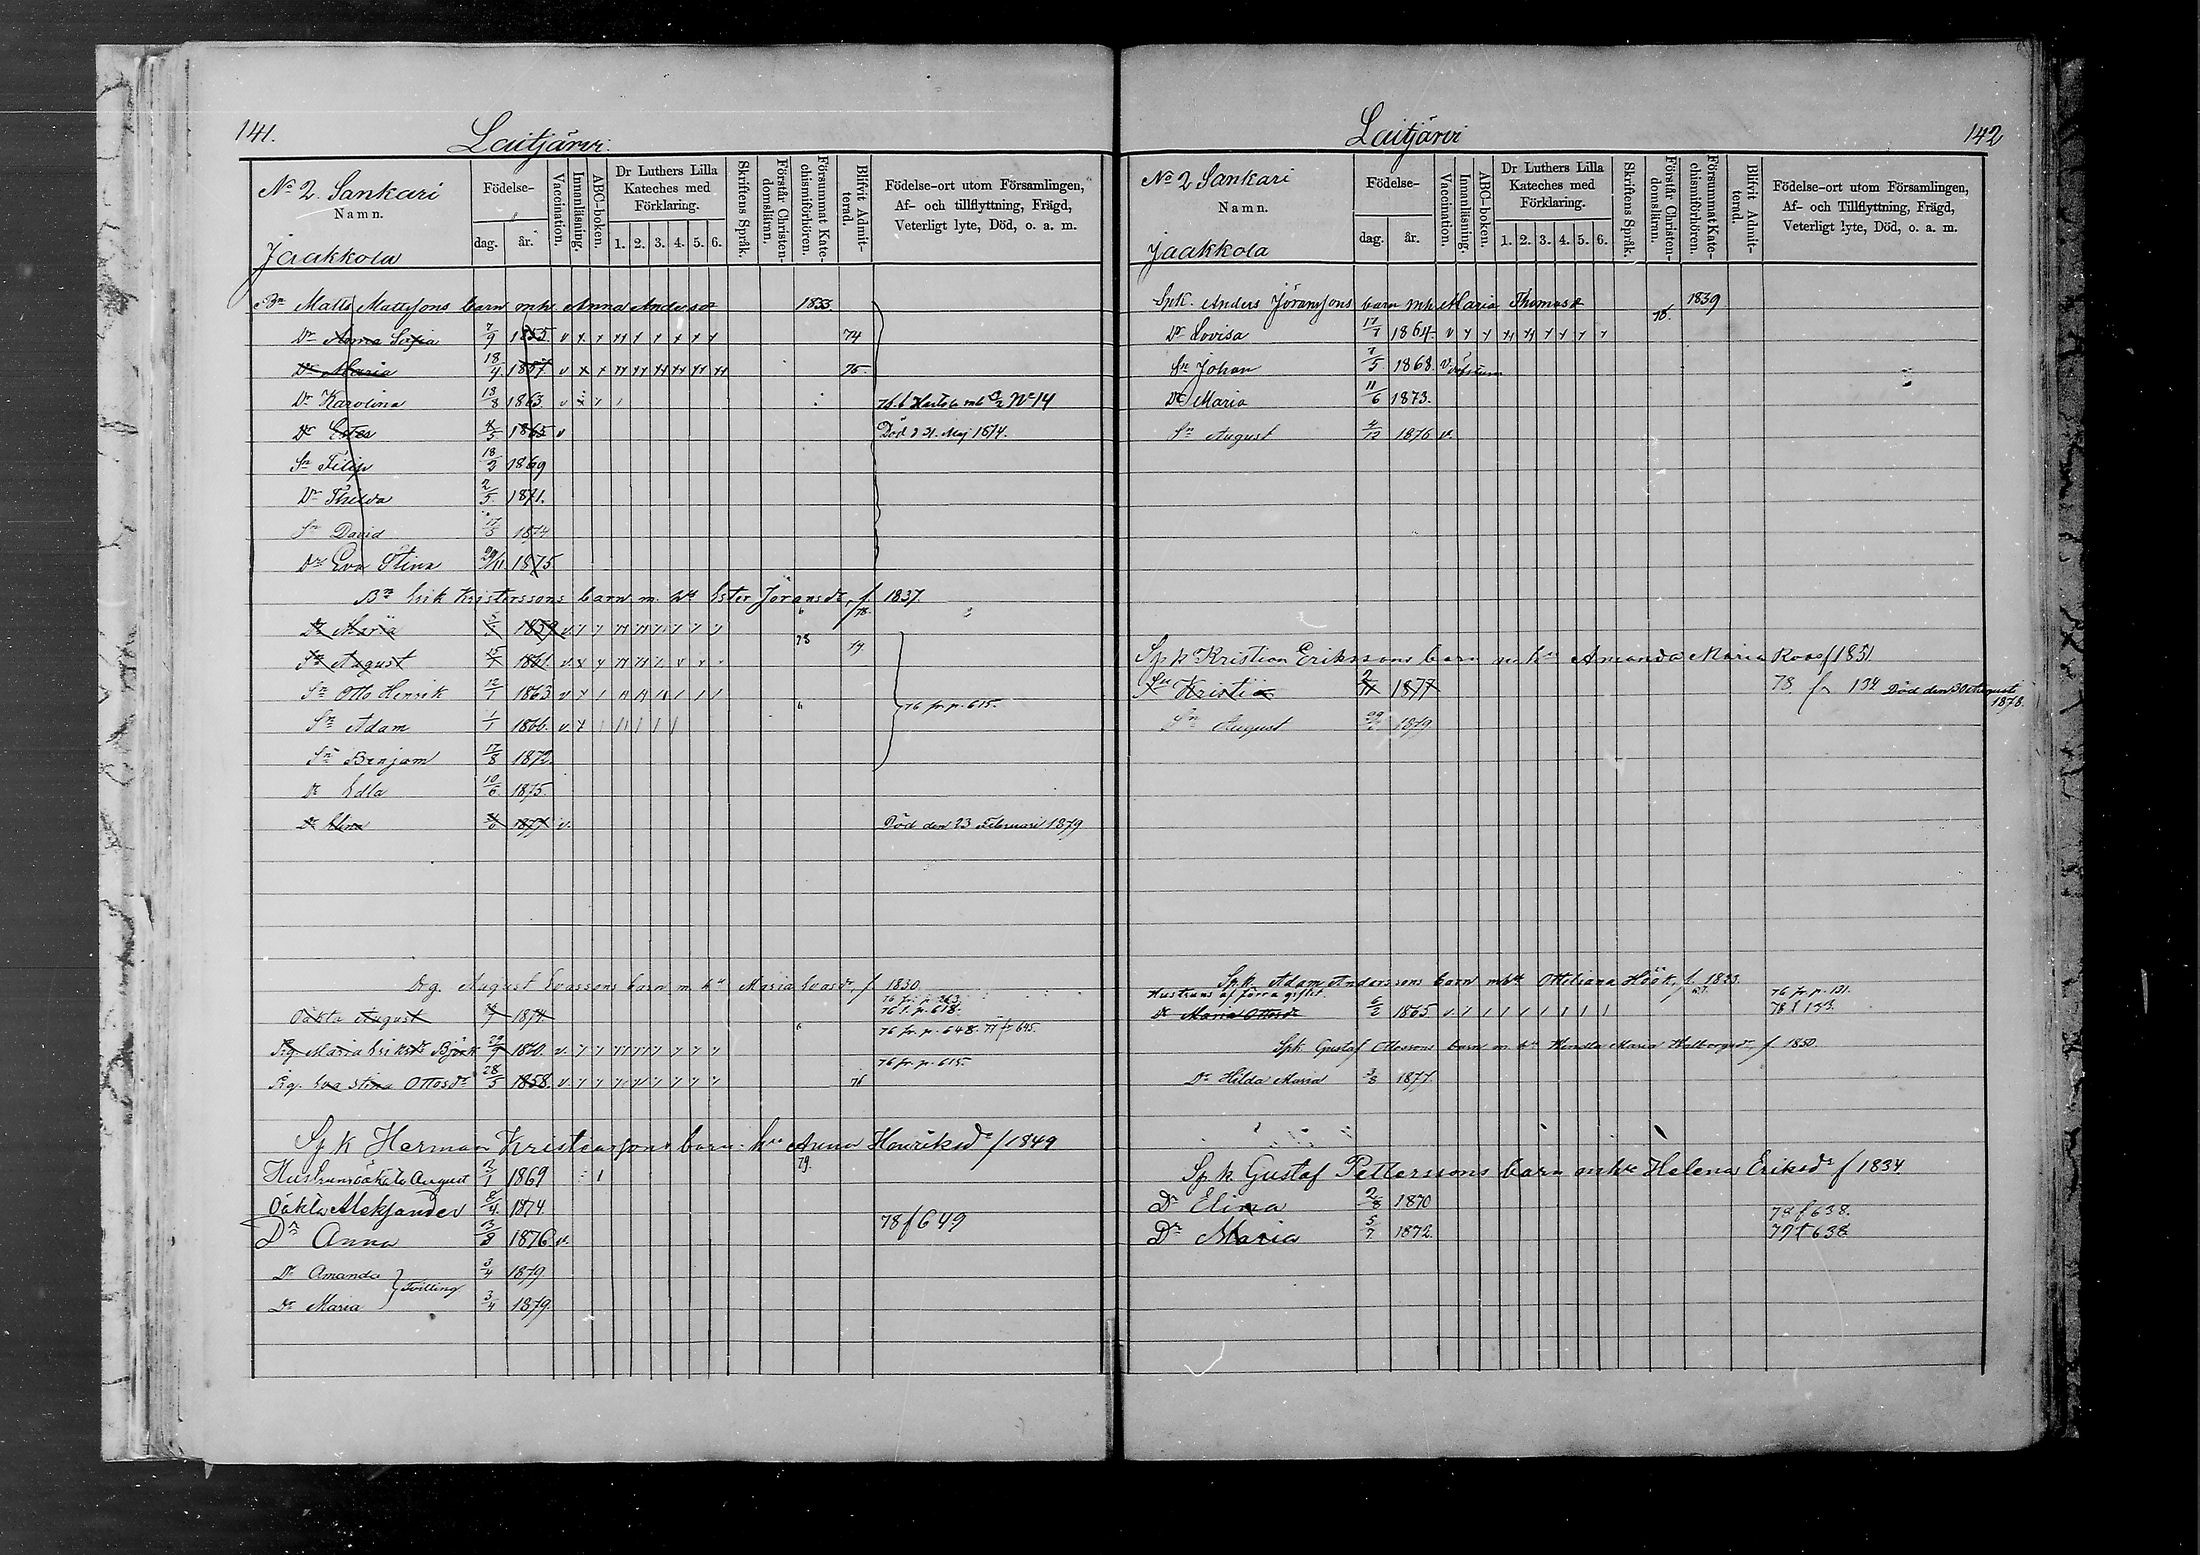 141.
Laitjärvi.
No 2. Sankari
Namn.
Jaakkola
Födelse-
dag.
år.
Vaccination.
Innanläsning.
ABC-boken.
Dr Luthers Lilla
Kateches med
Förklaring.
1. 2. 3. 4. 5. 6.
Skriftens Språk.
Förstår Christen-
domsläran.
Försummat Kate-
chismiförhören.
Blifvit Admit-
terad.
Födelse-ort utom Församlingen,
Af- och tillflyttning, Frägd,
Veterligt lyte, Död, o. a. m.
Bn Matts Mattssons barn mh Anna Andersdr 1833.
Dr Anna Sofia 7/9 1855. 74
Dr Maria 18/4 1857 75
Dr Karolina 13/8 1863
Dr Ester 1865 v Död d 31. Maj 1874.
Sn Filip 18/2 1869
Dr Thilda 2/5. 1871.
Sn David 17/5 1874
Dr Eva Stina 29/11. 1875
Bn Erik Kristerssons barn m. hu Ester Göransdr, f. 1837.
Dr Maria 1859 78.
Sn August 15/7 1861. 78 79.
Sn Otto Henrik 12/1 1863
Sn Adam 1/1 1866. 76 fr. p. 615.
Sn Benjam 17/8 1872.
Dr Edla 10/6. 1875.
Dr Elina 1877 v. Död den 23 Februari 1879
Drg. August Evassons barn m. hu Maria Evasdr, f 1830.
76 fr. p. 363.
Oäkta August 1874. 76 t. p. 618.
76 fr. p. 648. 77 fr 645.
Pig Maria Eriksdr Björk 1860.
76 fr. p. 615.
Pig. Eva Stina Ottosdr 28/5 1858. 76
Spk Herman Kristianssons barn hu Anna Henriksdr f 1849
Hustruns oäkta August 2/1 1869 79.
Oäkta Aleksander 1874
Dr Anna 1876 v. 78 f 649
Dr Amanda 3/4 1879
Tvilling
Dr Maria 3/4 1879
142
Laitjärvi
No 2 Sankari
Namn.
Jaakkola
Födelse-
dag.
år.
Vaccination.
Innanläsning.
ABC-boken.
Dr Luthers Lilla
Kateches med
Förklaring.
1. 2. 3. 4. 5. 6.
Skriftens Språk.
Förstår Christen-
domsläran.
Försummat Kate-
chismiförhören.
Blifvit Admit-
terad.
Födelse-ort utom Församlingen,
Af- och Tillflyttning, Frägd,
Veterligt lyte, Död, o. a. m.
Spk. Anders Göranssons barn mh Maria Thomasdr 1839
Dr Lovisa 17/7 1864.
Sn Johan 7/5 1868.
Dr Maria 11/6 1873.
Sn August 4/12 1876 v.
Spk Kristian Erikssons barn m hu Amanda Maria Roos f 1851
Sn Kristia 1877 78 fr 134 Död den 30 Augusti
1878.
Sn August 1879.
Spk. Adam Anderssons barn mhu Ottiliana Höök, f. 1833.
Hustrums af förra giftet. 76 fr. p. 131.
Dr Maria Ottosdr 1865 78 t 133.
Spk Gustaf Ottossons barn m. hu Wendla Maria Walborgsdr, f. 1850.
Dr Hilda Maria 3/8 1877.
Spk Gustaf Petterssons barn mhu Helena Eriksdr f 1834
Dr Elina 2/8 1870 78 f 638.
Dr Maria 5/7 1872. 79 t 638